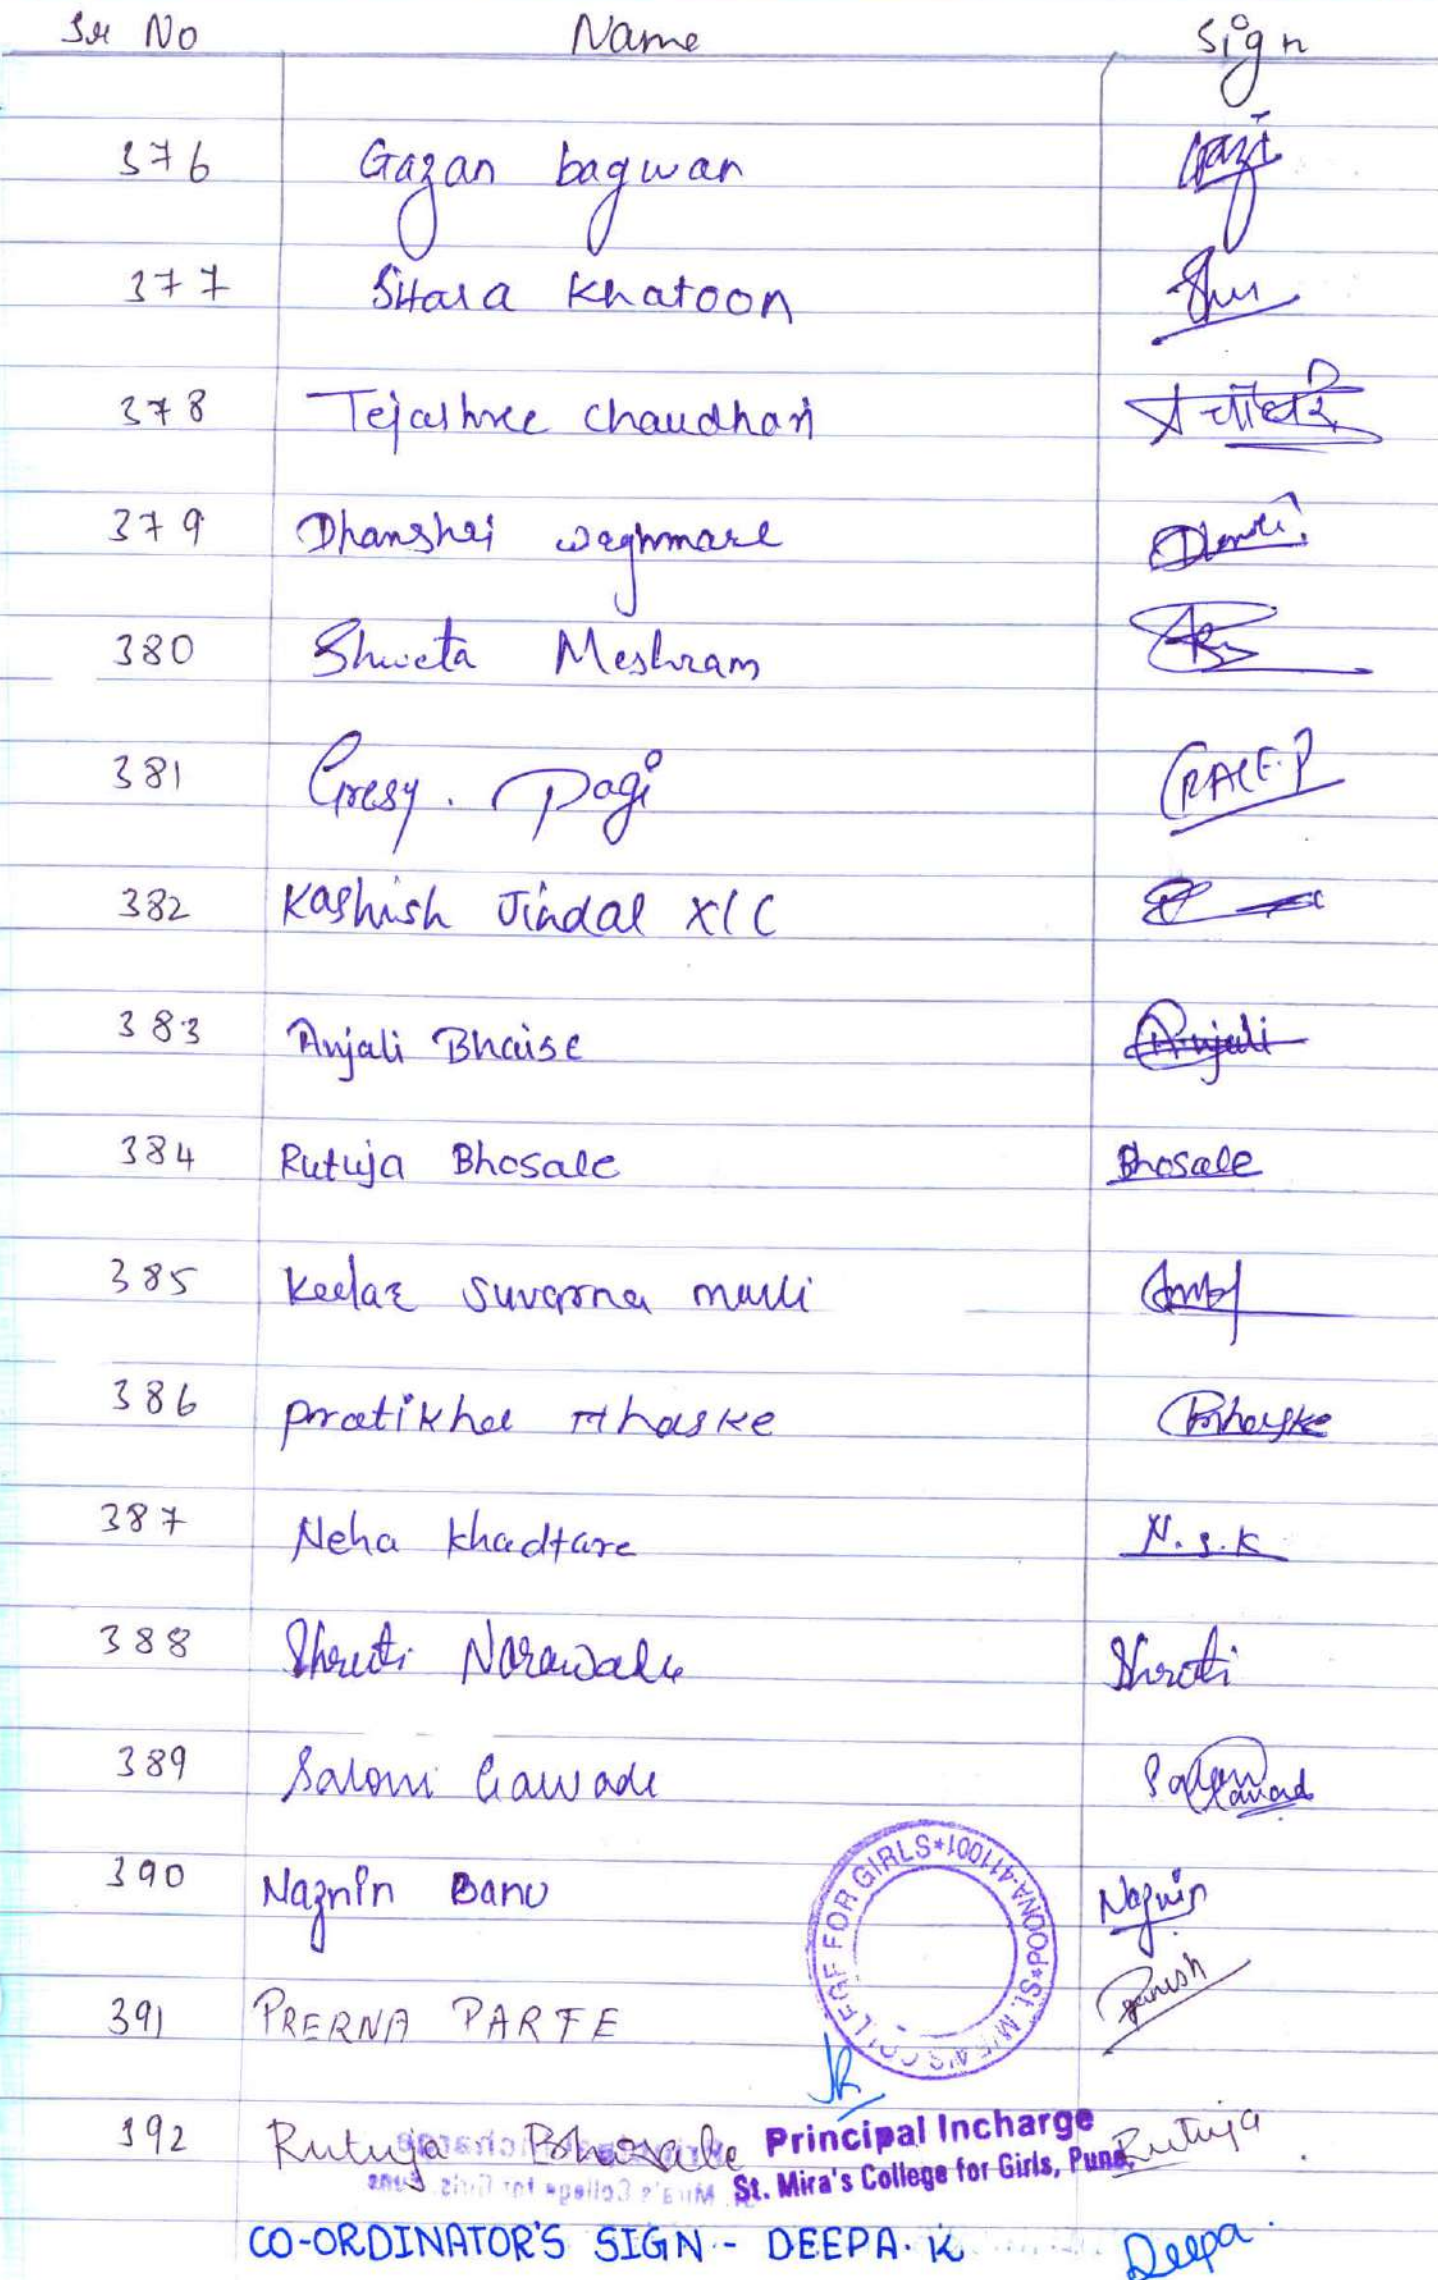 Sr No Name Sign
376 Gazan bagwan Gazi
377 Sitara Khatoon
378 Tejashree Chaudhari
379 Dhanshri waghmare
380 Shweta Meshram
381 Gresy. Pagi GRACE.P
382 Kashish Jindal XIC
383 Anjali Bhaise Anjali
384 Rutuja Bhosale Bhosale
385 Kedar Suvarna
386 Pratikha Mhaske
387 Neha Khadtare N.S.K
388 Shruti Narawale Shruti
389 Saloni Gawade
390 Naznin Banu Naznin
391 PRERNA PARTE
ST. MIRA'S COLLEGE FOR GIRLS*POONA-411001*
392 Rutuja Bhosale Rutuja
Principal Incharge
St. Mira's College for Girls, Pune.
CO-ORDINATOR'S SIGN - DEEPA. K Deepa.